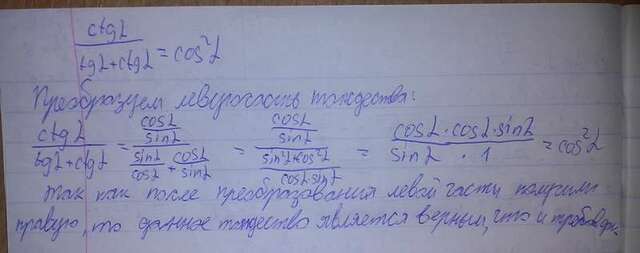 ctgα / tgα+ctgα = cos²α
Преобразуем левую часть тождества:
ctgα / tgα+ctgα = cosα/sinα / sinα/cosα + cosα/sinα = cosα/sinα / sin²α+cos²α/cosα·sinα = cosα·cosα·sinα / sinα · 1 = cos²α
Так как после преобразования левой части получили
правую, то данное тождество является верным, что и